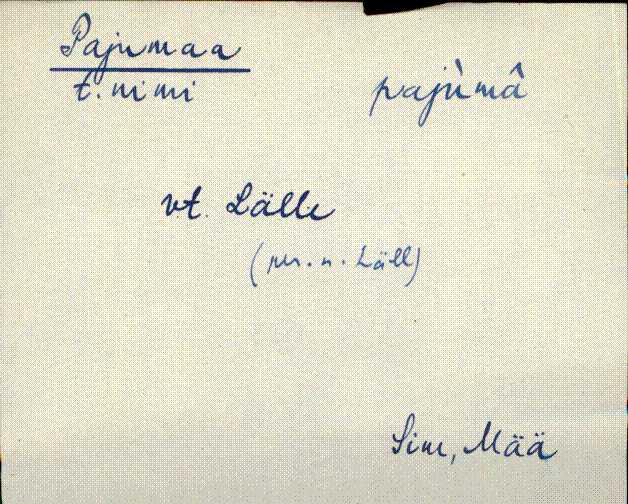 Pajumaa
t. nimi
pajùmâ
vt. Lälle
(per. n. Läll)
Sim, Mää